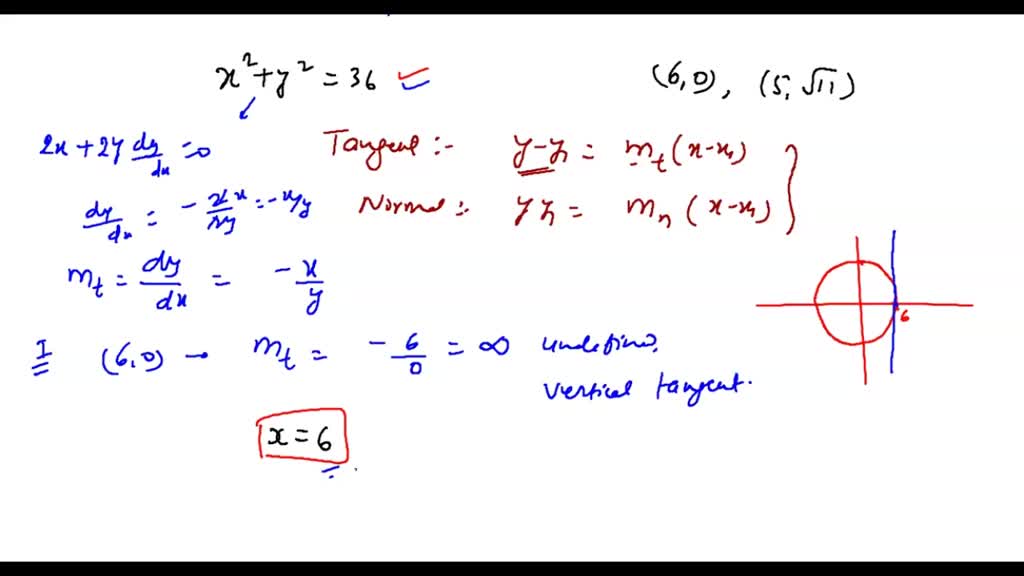 x² + y² = 36
(6,0), (5, √11)
2x + 2y dy/dx = 0
Tangent :- y-y₁ = mₜ(x-x₁)
dy/dx = -2x/2y = -x/y
Normal :- y y₁ = mₙ(x-x₁)
mₜ = dy/dx = -x/y
I (6,0) → mₜ = -6/0 = ∞ undefined.
vertical tangent.
x = 6
6